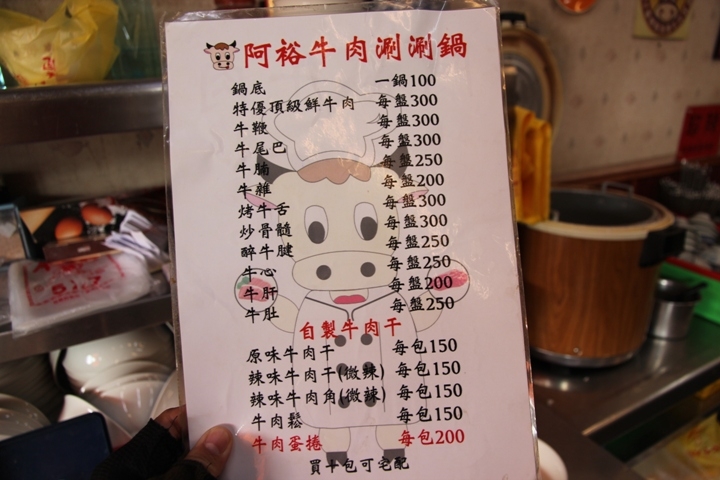 阿裕牛肉涮涮鍋
鍋底 一鍋100
特優頂級鮮牛肉 每盤300
牛鞭 每盤300
牛尾巴 每盤300
牛腩 每盤250
牛雜 每盤200
烤牛舌 每盤300
炒骨髓 每盤300
醉牛腱 每盤250
牛心 每盤250
牛肝 每盤200
牛肚 每盤250
自製牛肉干
原味牛肉干 每包150
辣味牛肉干(微辣) 每包150
辣味牛肉角(微辣) 每包150
牛肉鬆 每包150
牛肉蛋捲 每包200
買十包可宅配